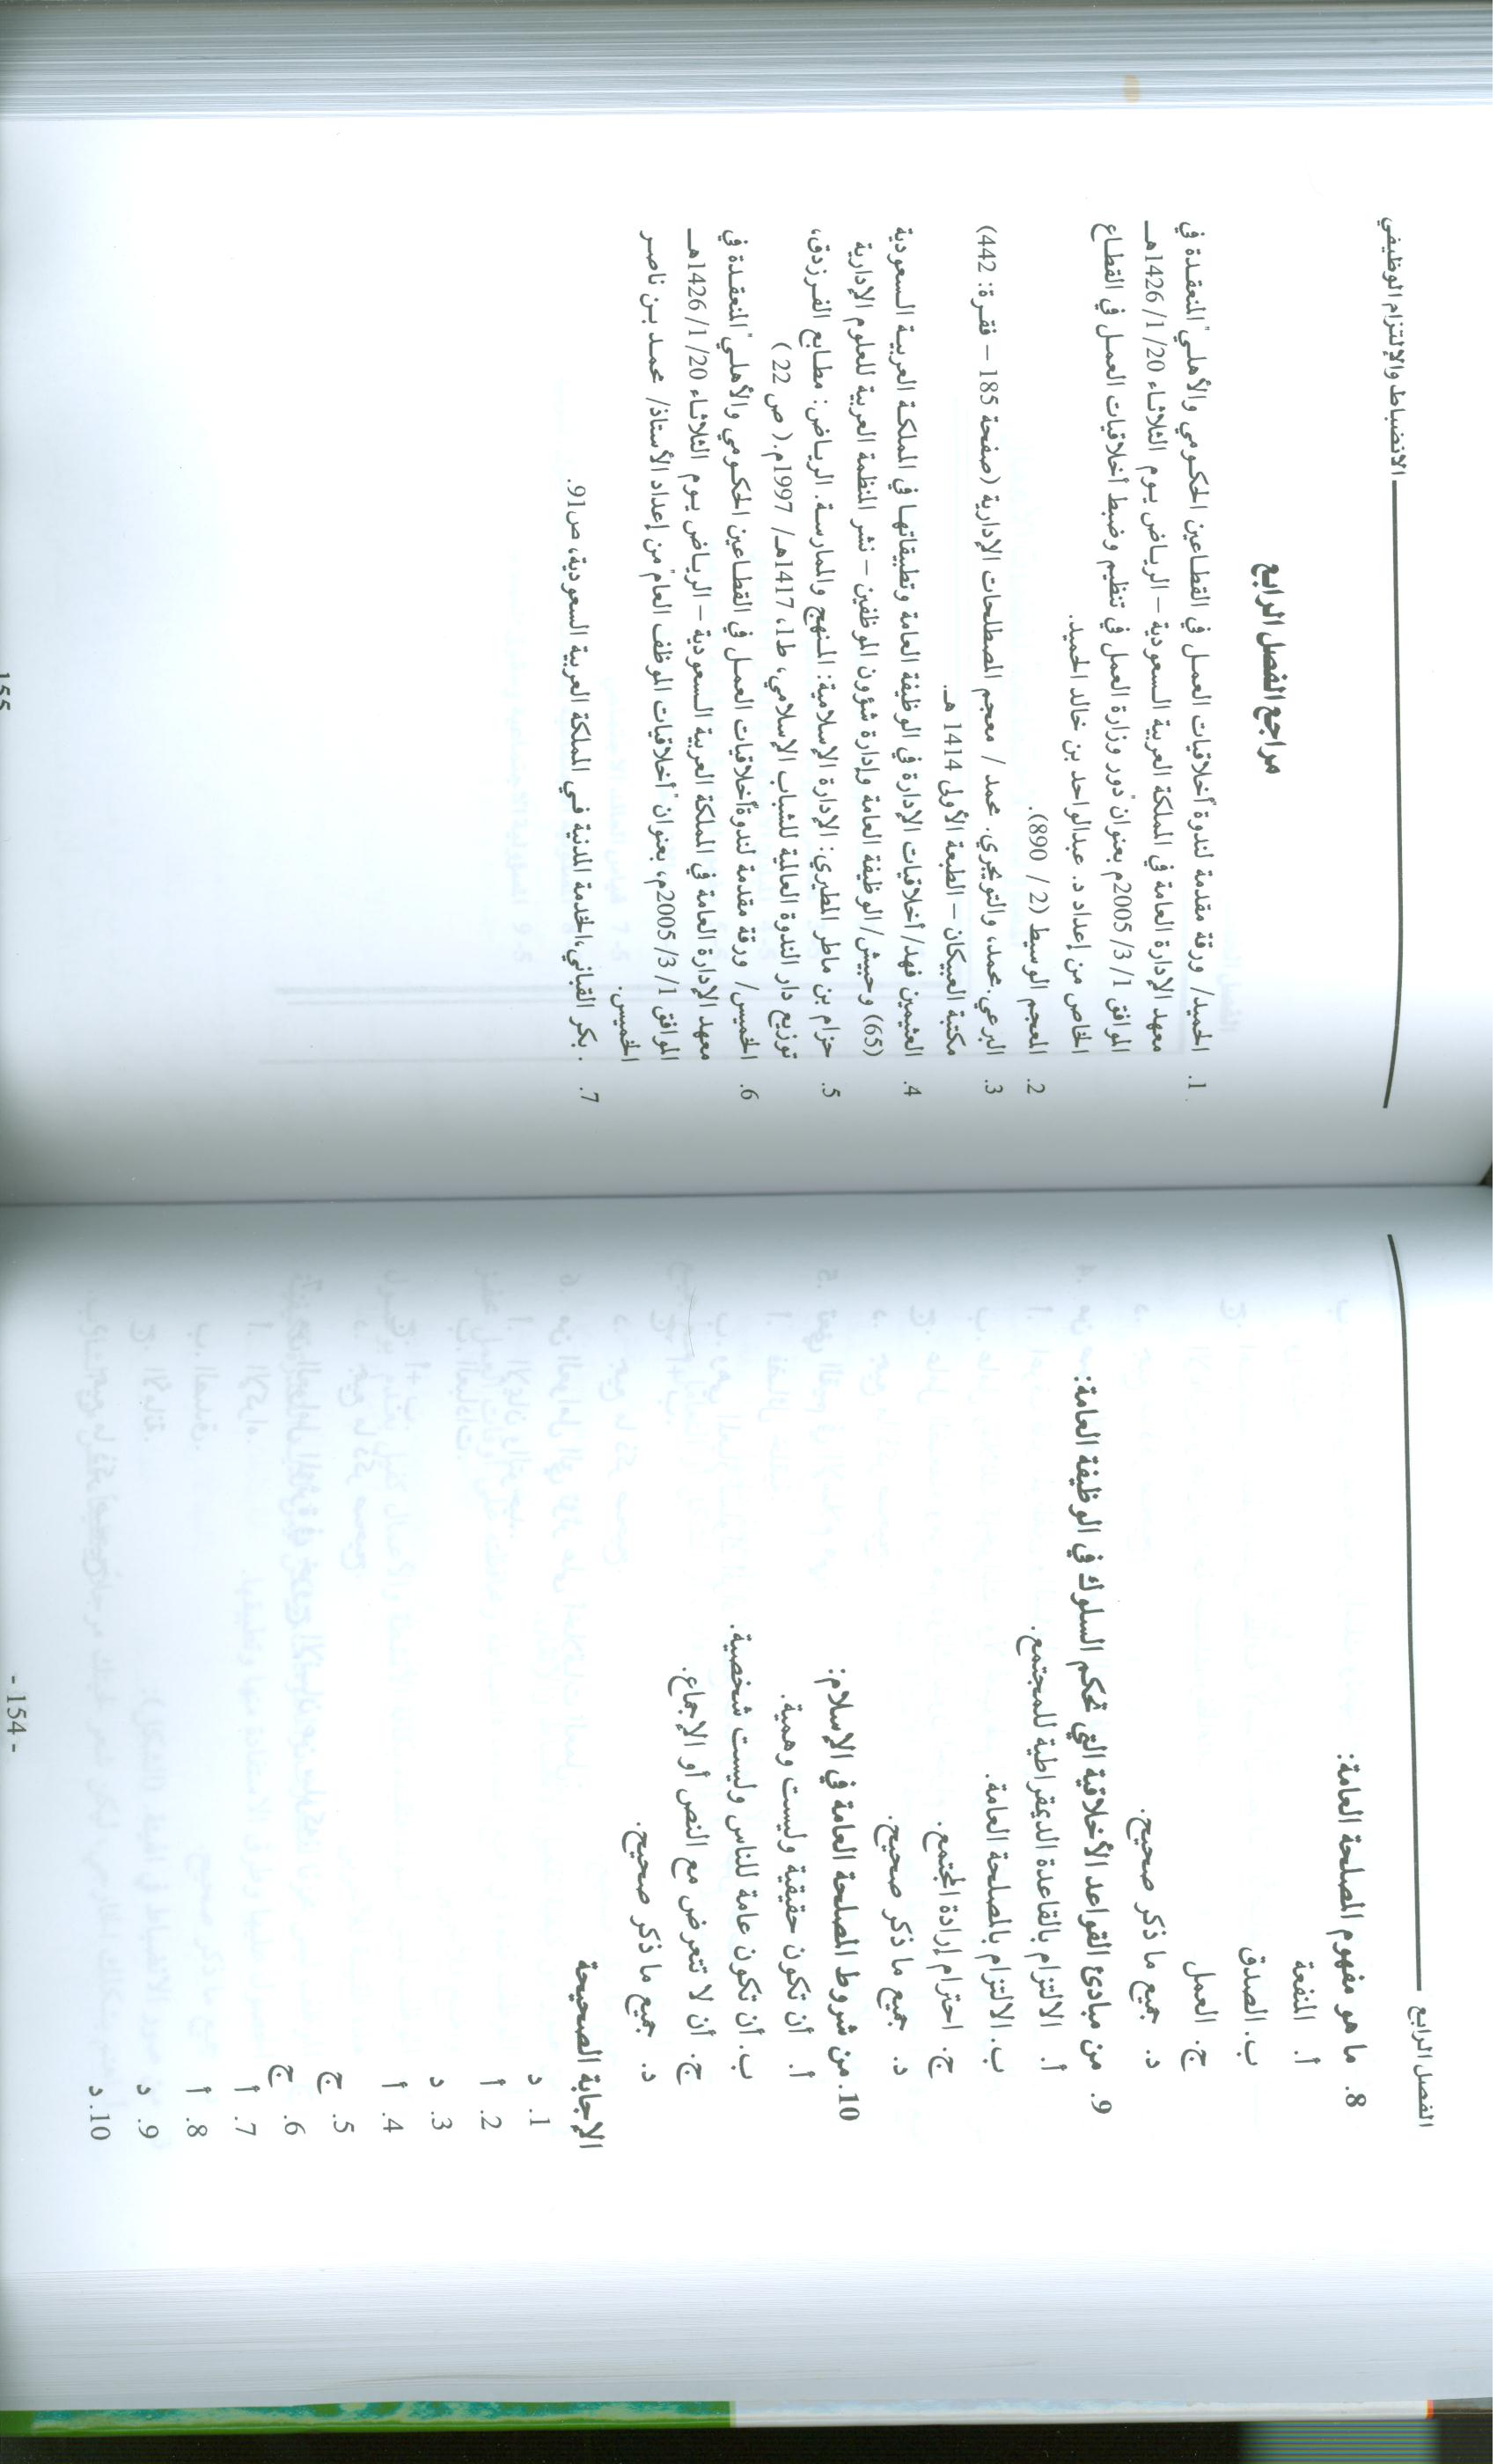 الفصل الرابع
8. ما هو مفهوم المصلحة العامة:
أ. المنفعة
ب. الصدق
ج. العمل
د. جميع ما ذكر صحيح.
9. من مبادئ القواعد الأخلاقية التي تحكم السلوك في الوظيفة العامة:
أ. الالتزام بالقاعدة الديمقراطية للمجتمع.
ب. الالتزام بالمصلحة العامة.
ج. احترام إرادة المجتمع.
د. جميع ما ذكر صحيح.
10. من شروط المصلحة العامة في الإسلام:
أ. أن تكون حقيقية وليست وهمية.
ب. أن تكون عامة للناس وليست شخصية.
ج. أن لا تتعرض مع النص أو الإجماع.
د. جميع ما ذكر صحيح.
الإجابة الصحيحة
1. د
2. أ
3. د
4. أ
5. ج
6. ج
7. أ
8. أ
9. د
10. د
- 154 -
الانضباط والإلتزام الوظيفي
مراجع الفصل الرابع
1. الحميد/ ورقة مقدمة لندوة "أخلاقيات العمل في القطاعين الحكومي والأهلي" المنعقدة في
معهد الإدارة العامة في المملكة العربية السعودية – الرياض يوم الثلاثاء 20/ 1/ 1426هـ
الموافق 1/ 3/ 2005م بعنوان "دور وزارة العمل في تنظيم وضبط أخلاقيات العمل في القطاع
الخاص من إعداد د. عبدالواحد بن خالد الحميد.
2. المعجم الوسيط (2 / 890).
3. البرعي.محمد، والتويجري. محمد / معجم المصطلحات الإدارية (صفحة 185 – فقرة: 442)
مكتبة العبيكان – الطبعة الأولى 1414 هـ.
4. العثيمين فهد/ أخلاقيات الإدارة في الوظيفة العامة وتطبيقاتها في المملكة العربية السعودية
(65) وحبيش/ الوظيفة العامة وإدارة شؤون الموظفين – نشر المنظمة العربية للعلوم الإدارية
5. حزام بن ماطر المطيري: الإدارة الإسلامية: المنهج والممارسة. الرياض: مطابع الفرزدق،
توزيع دار الندوة العالمية للشباب الإسلامي، ط1، 1417هـ/ 1997م. ( ص 22 )
6. الخميس/ ورقة مقدمة لندوة"أخلاقيات العمل في القطاعين الحكومي والأهلي" المنعقدة في
معهد الإدارة العامة في المملكة العربية السعودية – الرياض يوم الثلاثاء 20/ 1/ 1426هـ
الموافق 1/ 3/ 2005م، بعنوان "أخلاقيات الموظف العام" من إعداد الأستاذ/ محمد بن ناصر
الخميس.
7. . بكر القباني،الخدمة المدنية في المملكة العربية السعودية، ص91.
155